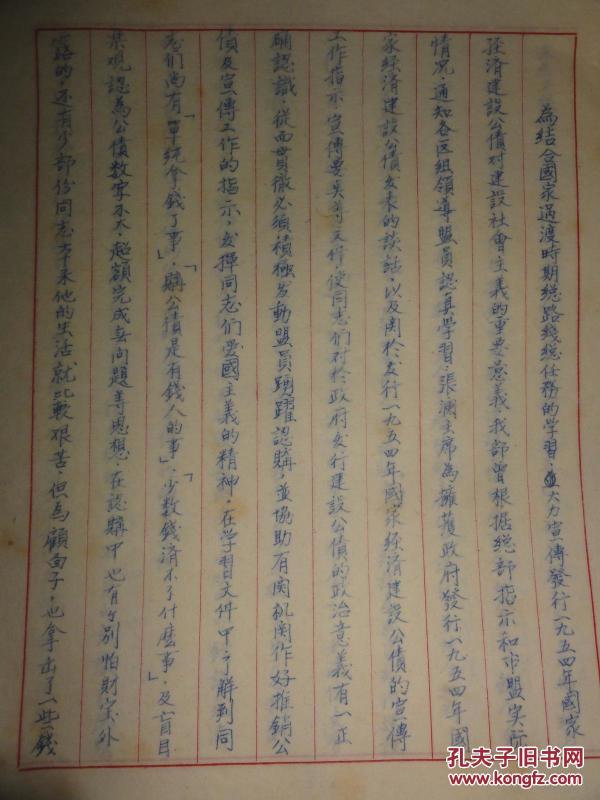 為結合國家過渡時期總路綫總任務的学習,並大力宣傳發行一九五四年國家
经济建設公債对建設社會主義的重要意義,我部曾根据總部指示和市盟实际
情况,通知各区組領導盟員認真学習,張瀾主席為擁護政府發行一九五四年國
家經濟建設公債发表的談話,以及関於发行一九五四年國家經済建設公債的宣傳
工作指示,宣傳要点等文件使同志們对於政府发行建設公債的政治意義有一正
確認識,從而貫徹必須積極发動盟員踴躍認購,並協助有関机関作好推銷公
債及宣傳工作的指示,发揮同志們愛國主義的精神。在学習文件中了解到同
志們尚有「單純拿錢了事」,「購公債是有錢人的事」,「少数錢済不了什麽事」,及盲目
樂观認為公債数字不大,超額完成無問題等思想,在認購中也有个别怕財宝外
露的,还有少部份同志本来他的生活就比較艰苦,但為顧面子,也拿出了一些錢
孔夫子旧书网
www.kongfz.com